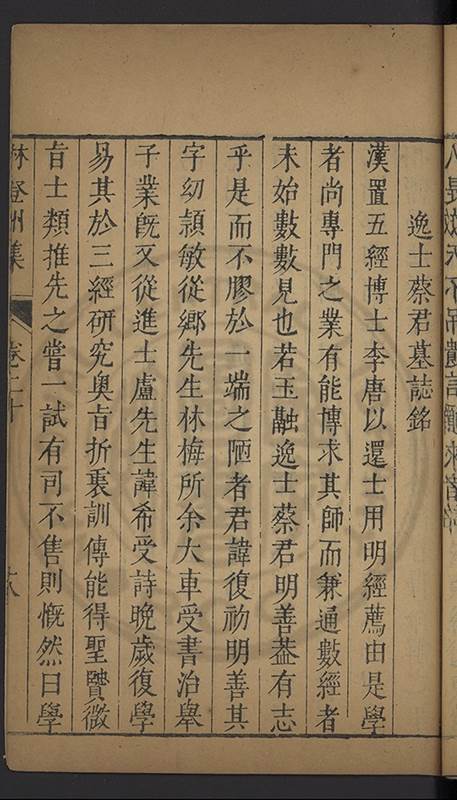 逸士蔡君墓誌銘
漢置五經博士李唐以還士用明經薦由是學
者尚專門之業有能博求其師而兼通數經者
未始數數見也若玉融逸士蔡君明善葢有志
乎是而不膠於一端之陋者君諱復初明善其
字幼頴敏從鄉先生林梅所余大車受書治舉
子業旣又從進士盧先生諱希受詩晚歲復學
易其於三經研究奥旨折衷訓傳能得聖贒微
旨士類推先之嘗一試有司不售則慨然曰學
林登州集
卷二十